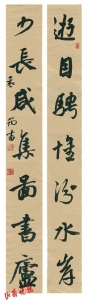 遊目騁懷汾水岸
少長咸集圖書廬